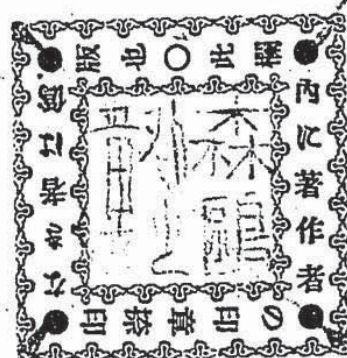 此欄
内に著作者
の印章捺印
なき者は偽
版也〇
森鷗